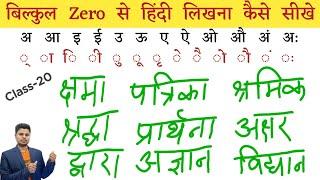 बिल्कुल Zero से हिंदी लिखना कैसे सीखे
अ आ इ ई उ ऊ ए ऐ ओ औ अं अः
्र ा ि ी ु ू ृ े ै ो ौ ं ः
Class-20
क्षमा पत्रिका श्रमिक
श्रद्धा प्रार्थना अक्षर
द्वारा अज्ञान विद्यान